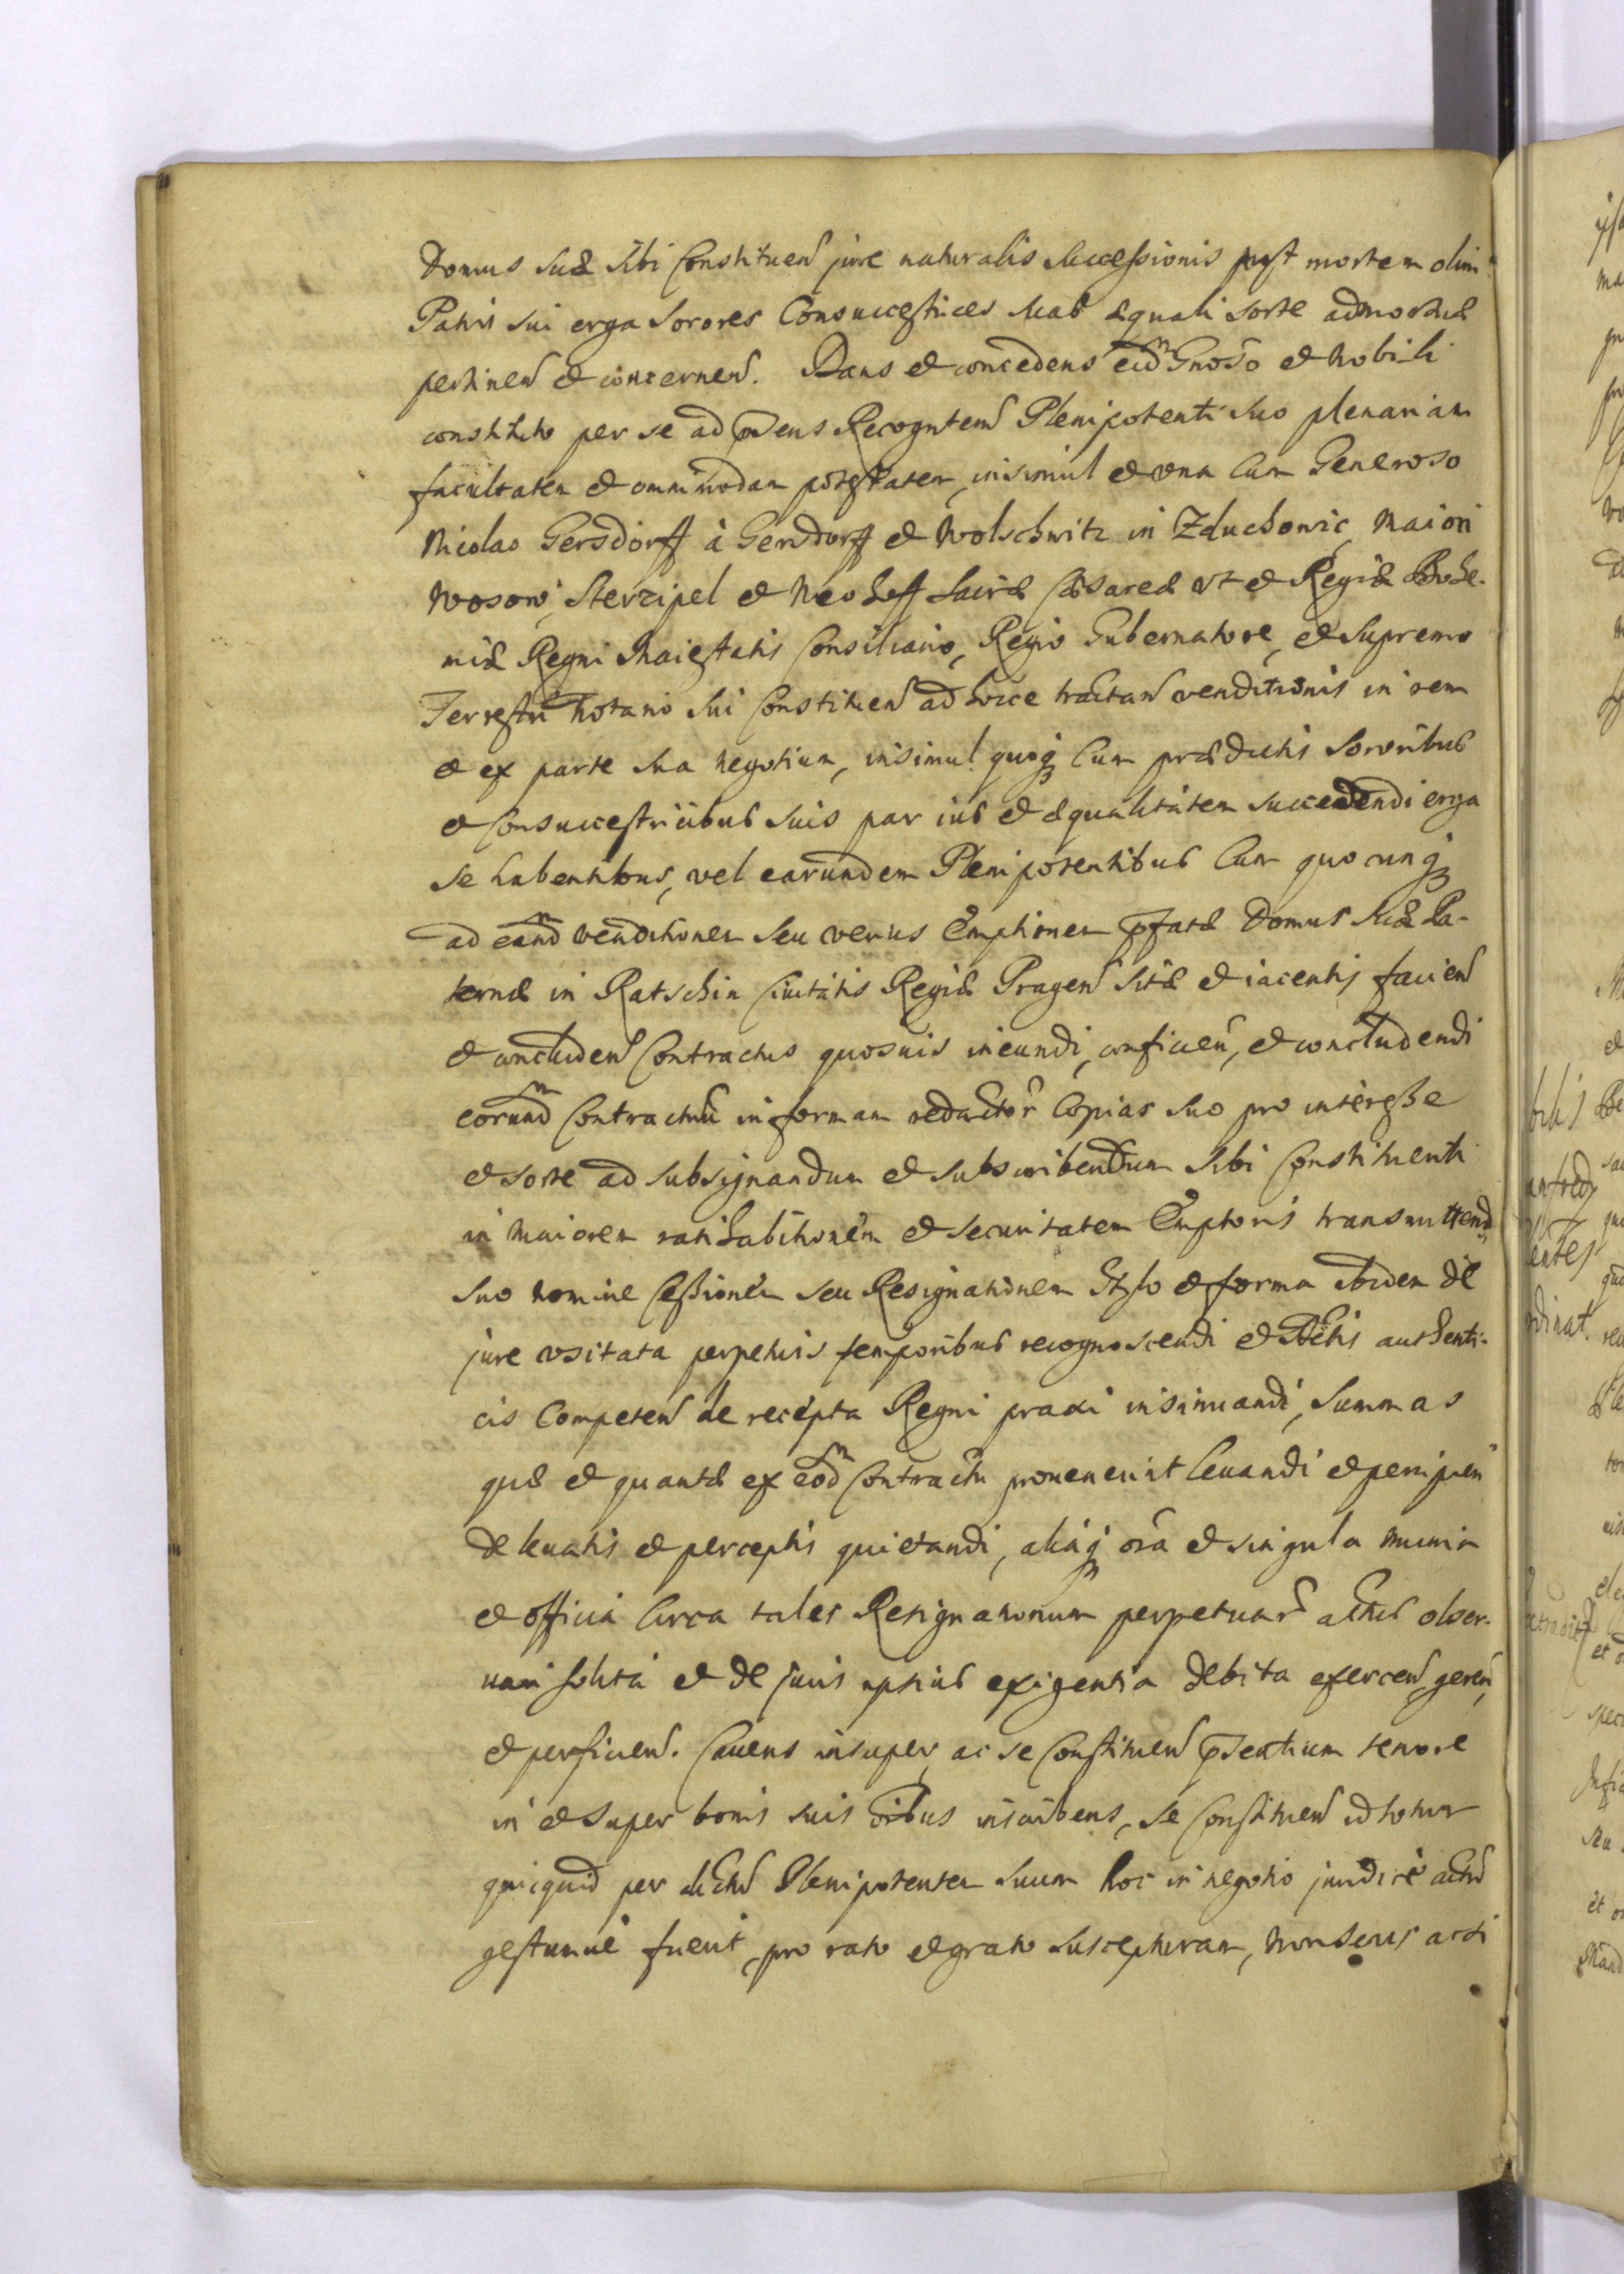 Domus suæ sibi Constituen jure naturalis successionis post mortem olim
Patris sui erga Sorores Consuccestrices suas æquali sorte admodu
pertinen et concernen. Dans et concedens eidm Gnoso et Nobili
constituto per se ad pñs Recognten Plenipotenti suo plenariam
facultatem et omnimodam potestatem, insimul et vna Cum Generoso
Nicolao Gersdorff à Gersdorff et Wolschwitz in Zduchowic, Maiori
Wosow, Sterzipel et Neohoff Sacræ Cæsareæ vt et Regiæ Bohe-
miæ Regni Maiestatis Consiliario, Regio Gubernatore, et Supremo
Terrestri Notario sui Constituen ad hocce tractan venditionis in rem
et ex parte sua negotium, insimul quoq Cum prædictis Sororibus
et Consuccestricibus suis par ius et æqualitatem succedendi erga
se habentibus, vel earundem Plenipotentibus Cum quocunq
ad eandm venditionem seu verius Emptionem pfatæ Domus suæ Pa-
ternæ in Ratschin Ciuitatis Regiæ Pragen sitæ et iacentis facien
et concluden Contractus quosuis ineundi, conficien, et concludendi
eorundm Contractuũ in formam redactor Copias suo pro interesse
et sorte ad subsignandum et subscribendum sibi Constituenti
in maiorem ratihabitionem et securitatem Emptoris transmittend,
suo nomine Cessionem seu Resignationem Stylo et forma ibidem de
jure vsitata perpetuis temporibus recognoscendi et Actis authenti-
cis Competen de recepta Regni praxi insinuandi, Summas
quæ et quantæ ex eodm Contractu prouenerint leuandi et percipien
de leuatis et perceptis quietandi, aliaq oia et singula munia
et officia Circa tales Resignationum perpetuar actus obser-
uari solita et de juris ipsius exigentia debita exercen, geren,
et perficien. Cauens insuper, ac se Constituen psentium tenore
in et super bonis suis oibus inscribens, se Constituen id totum
quicquid per dictũ Plenipotentem suum hoc in negotio juridicè actũ
gestumue fuerit, pro rato et grato suscepturam, Non secus acsi